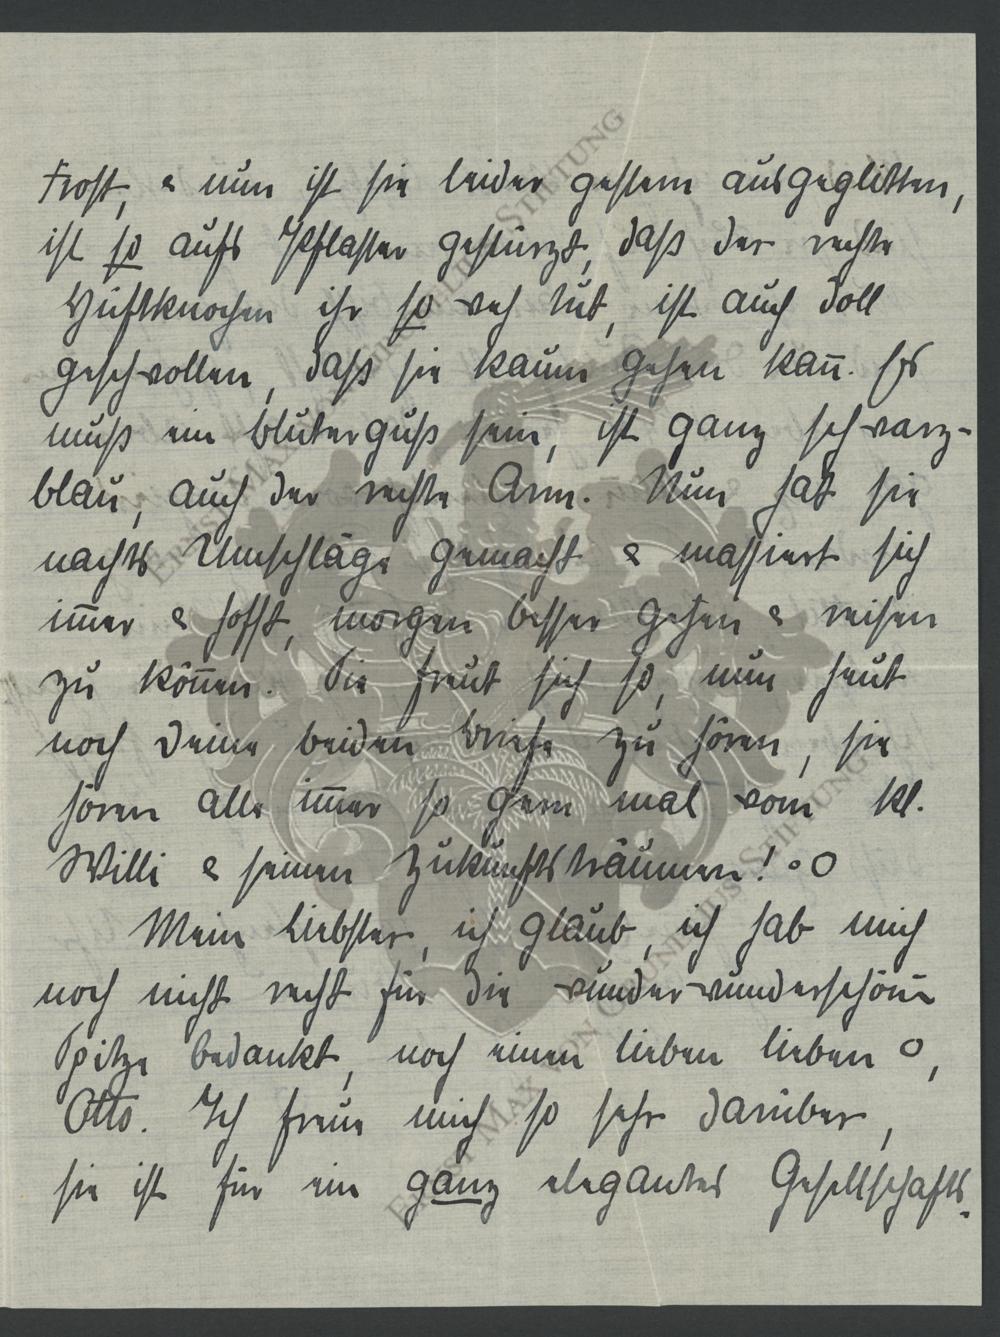 Frost, & nun ist sie leider gestern ausgeglitten,
ist so aufs Pflaster gestürzt, daß der rechte
Hüftknochen ihr so weh tut, ist auch doll
geschwollen, daß sie kaum gehen kan̄. Es
muß ein Bluterguß sein, ist ganz schwarz-
blau, auch der rechte Arm. Nun hat sie
nachts Umschläge gemacht & massiert sich
im̄er & hofft, morgen besser gehen & reisen
zu kön̄en. Sie freut sich so, nun heut
noch Deine beiden Briefe zu hören, sie
hören alle im̄er so gern mal vom kl.
Willi & seinen Zukunftsträumen! ° O
Mein Liebster, ich glaub, ich hab mich
noch nicht recht für die wunderwunderschöne
Spitze bedankt, noch einen lieben lieben O,
Otto. Ich freue mich so sehr darüber,
sie ist für ein ganz elegantes Gesellschafts-
ERNST MAX VON GRUNELIUS-STIFTUNG
ERNST MAX VON GRUNELIUS-STIFTUNG